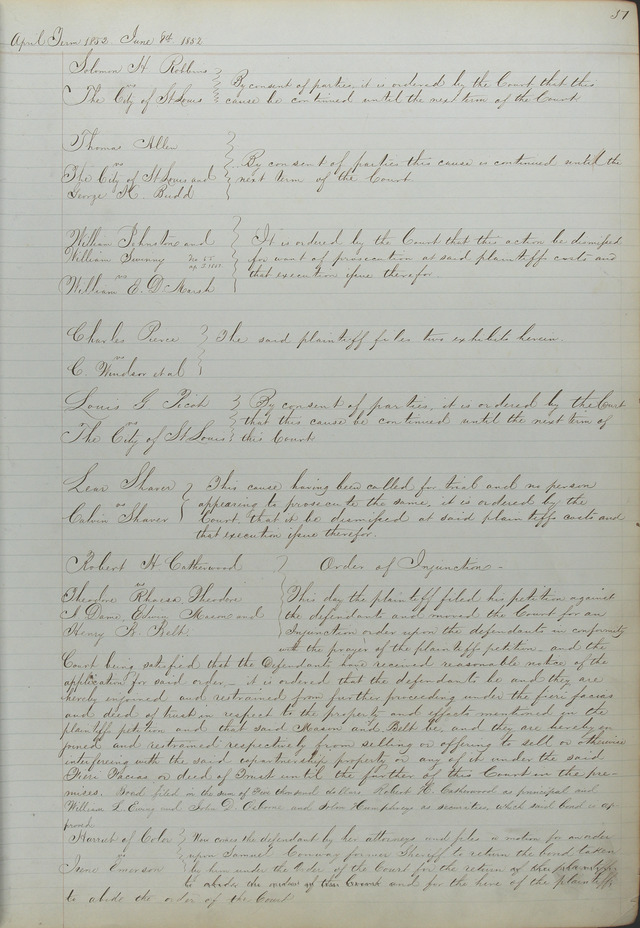 37
April Term 1852. June 9th 1852
Solomon H Robbins
vs
The City of St Louis
By consent of parties, it is ordered by the Court, that this
cause be continued until the next term of the Court
Thomas Allen
vs
The City of St Louis and
George K. Budd
By consent of parties this cause is continued until the
next term of the Court
William Johnston and
William
vs
William E. D. Marsh
It is ordered by the Court that this action be dismissed
for want of prosecution at said plaintiffs costs and
that execution issue therefor.
Charles Pierce
vs
C. Windsor et al
The said plaintiff files two exhibits herein.
Louis G Picot
vs
The City of St Louis
By consent of parties, it is ordered by the Court
that this cause be continued until the next term of
this Court
Lear Shaver
vs
Calvin Shaver
This cause having been called for trial and no person
appearing to prosecute the same, it is ordered by the
Court, that it be dismissed at said plaintiffs costs and
that execution issue therefor.
Robert H Catherwood
vs
Theodore Theodore
I Dame, Edwin Mason and
Henry Belt.
Order of Injunction -
This day the plaintiff filed his petition against
the defendants and moved the Court for an
Injunction order upon the defendants in conformity
with the prayer of the plaintiffs petition and the
Court being satisfied that the Defendants have received reasonable notice of the
application for said order,— it is ordered that the defendants be and they are
hereby enjoined and restrained from further proceeding under the fieri facias
and deed of trust in respect to the property and effects mentioned in the
plaintiffs petition and that said Mason and Belt be, and they are hereby en
joined and restrained respectively from selling or offering to sell or otherwise
interfering with the said copartnership property or any of it under the said
Fieri Facias or deed of Trust until the further of this Court in the pre-
mises. Bond filed in the sum of thousand dollars Robert H. Catherwood as principal and
William L Ewing and John D. Osborne and John Humphreys as securities, which said bond is ap
proved.
Harriet of Color
vs
Irene Emerson
Now comes the defendant by her attorneys and files a motion for an order
upon Samuel Conway former Sheriff to return the bond taken
by him under the Order of the Court for the return of the plaintiffs
to abide the order of this Court and for the hire of the plaintiffs
to abide the order of the Court